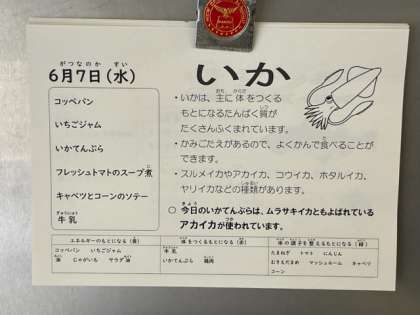 6月7日(水)
いか
コッペパン
いちごジャム
いかてんぷら
フレッシュトマトのスープ煮
キャベツとコーンのソテー
牛乳
・いかは、主に体をつくる
もとになるたんぱく質が
たくさんふくまれています。
・かみごたえがあるので、よくかんで食べることが
できます。
・スルメイカやアカイカ、コウイカ、ホタルイカ、
ヤリイカなどの種類があります。
○ 今日のいかてんぷらは、ムラサキイカともよばれている
アカイカが使われています。
エネルギーのもとになる(黄)
コッペパン いちごジャム
じゃがいも サラダ油
体をつくるもとになる(赤)
牛乳
いかてんぷら 鶏肉
体の調子を整えるもとになる(緑)
たまねぎ トマト にんじん
むきえだまめ マッシュルーム キャベツ
コーン